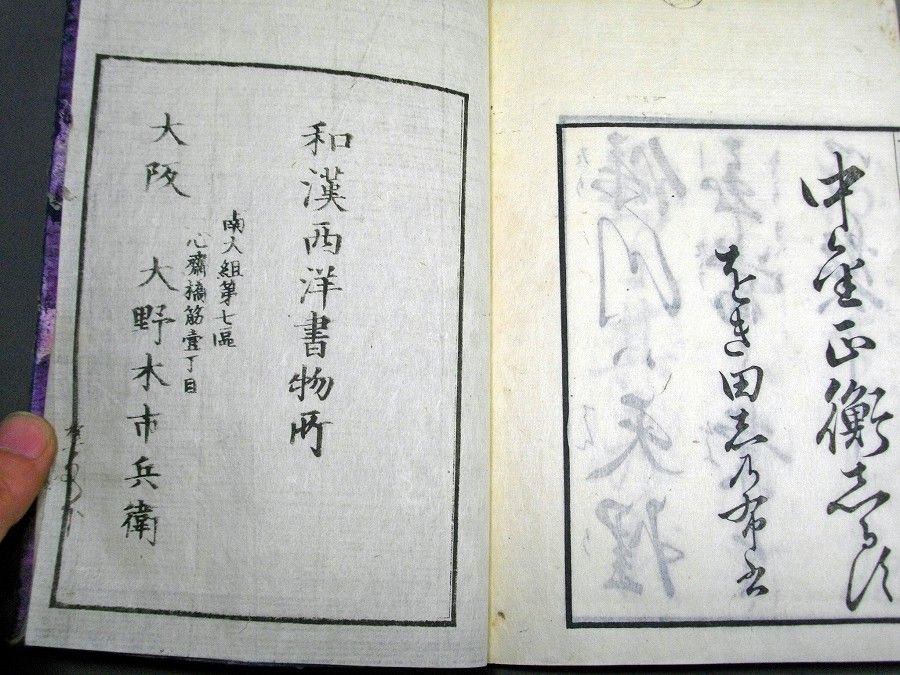 中金正衡志る須
をき田志乃布書
和漢西洋書物所
大阪
南大組第七區
心齋橋筋壹丁目
大野木市兵衛